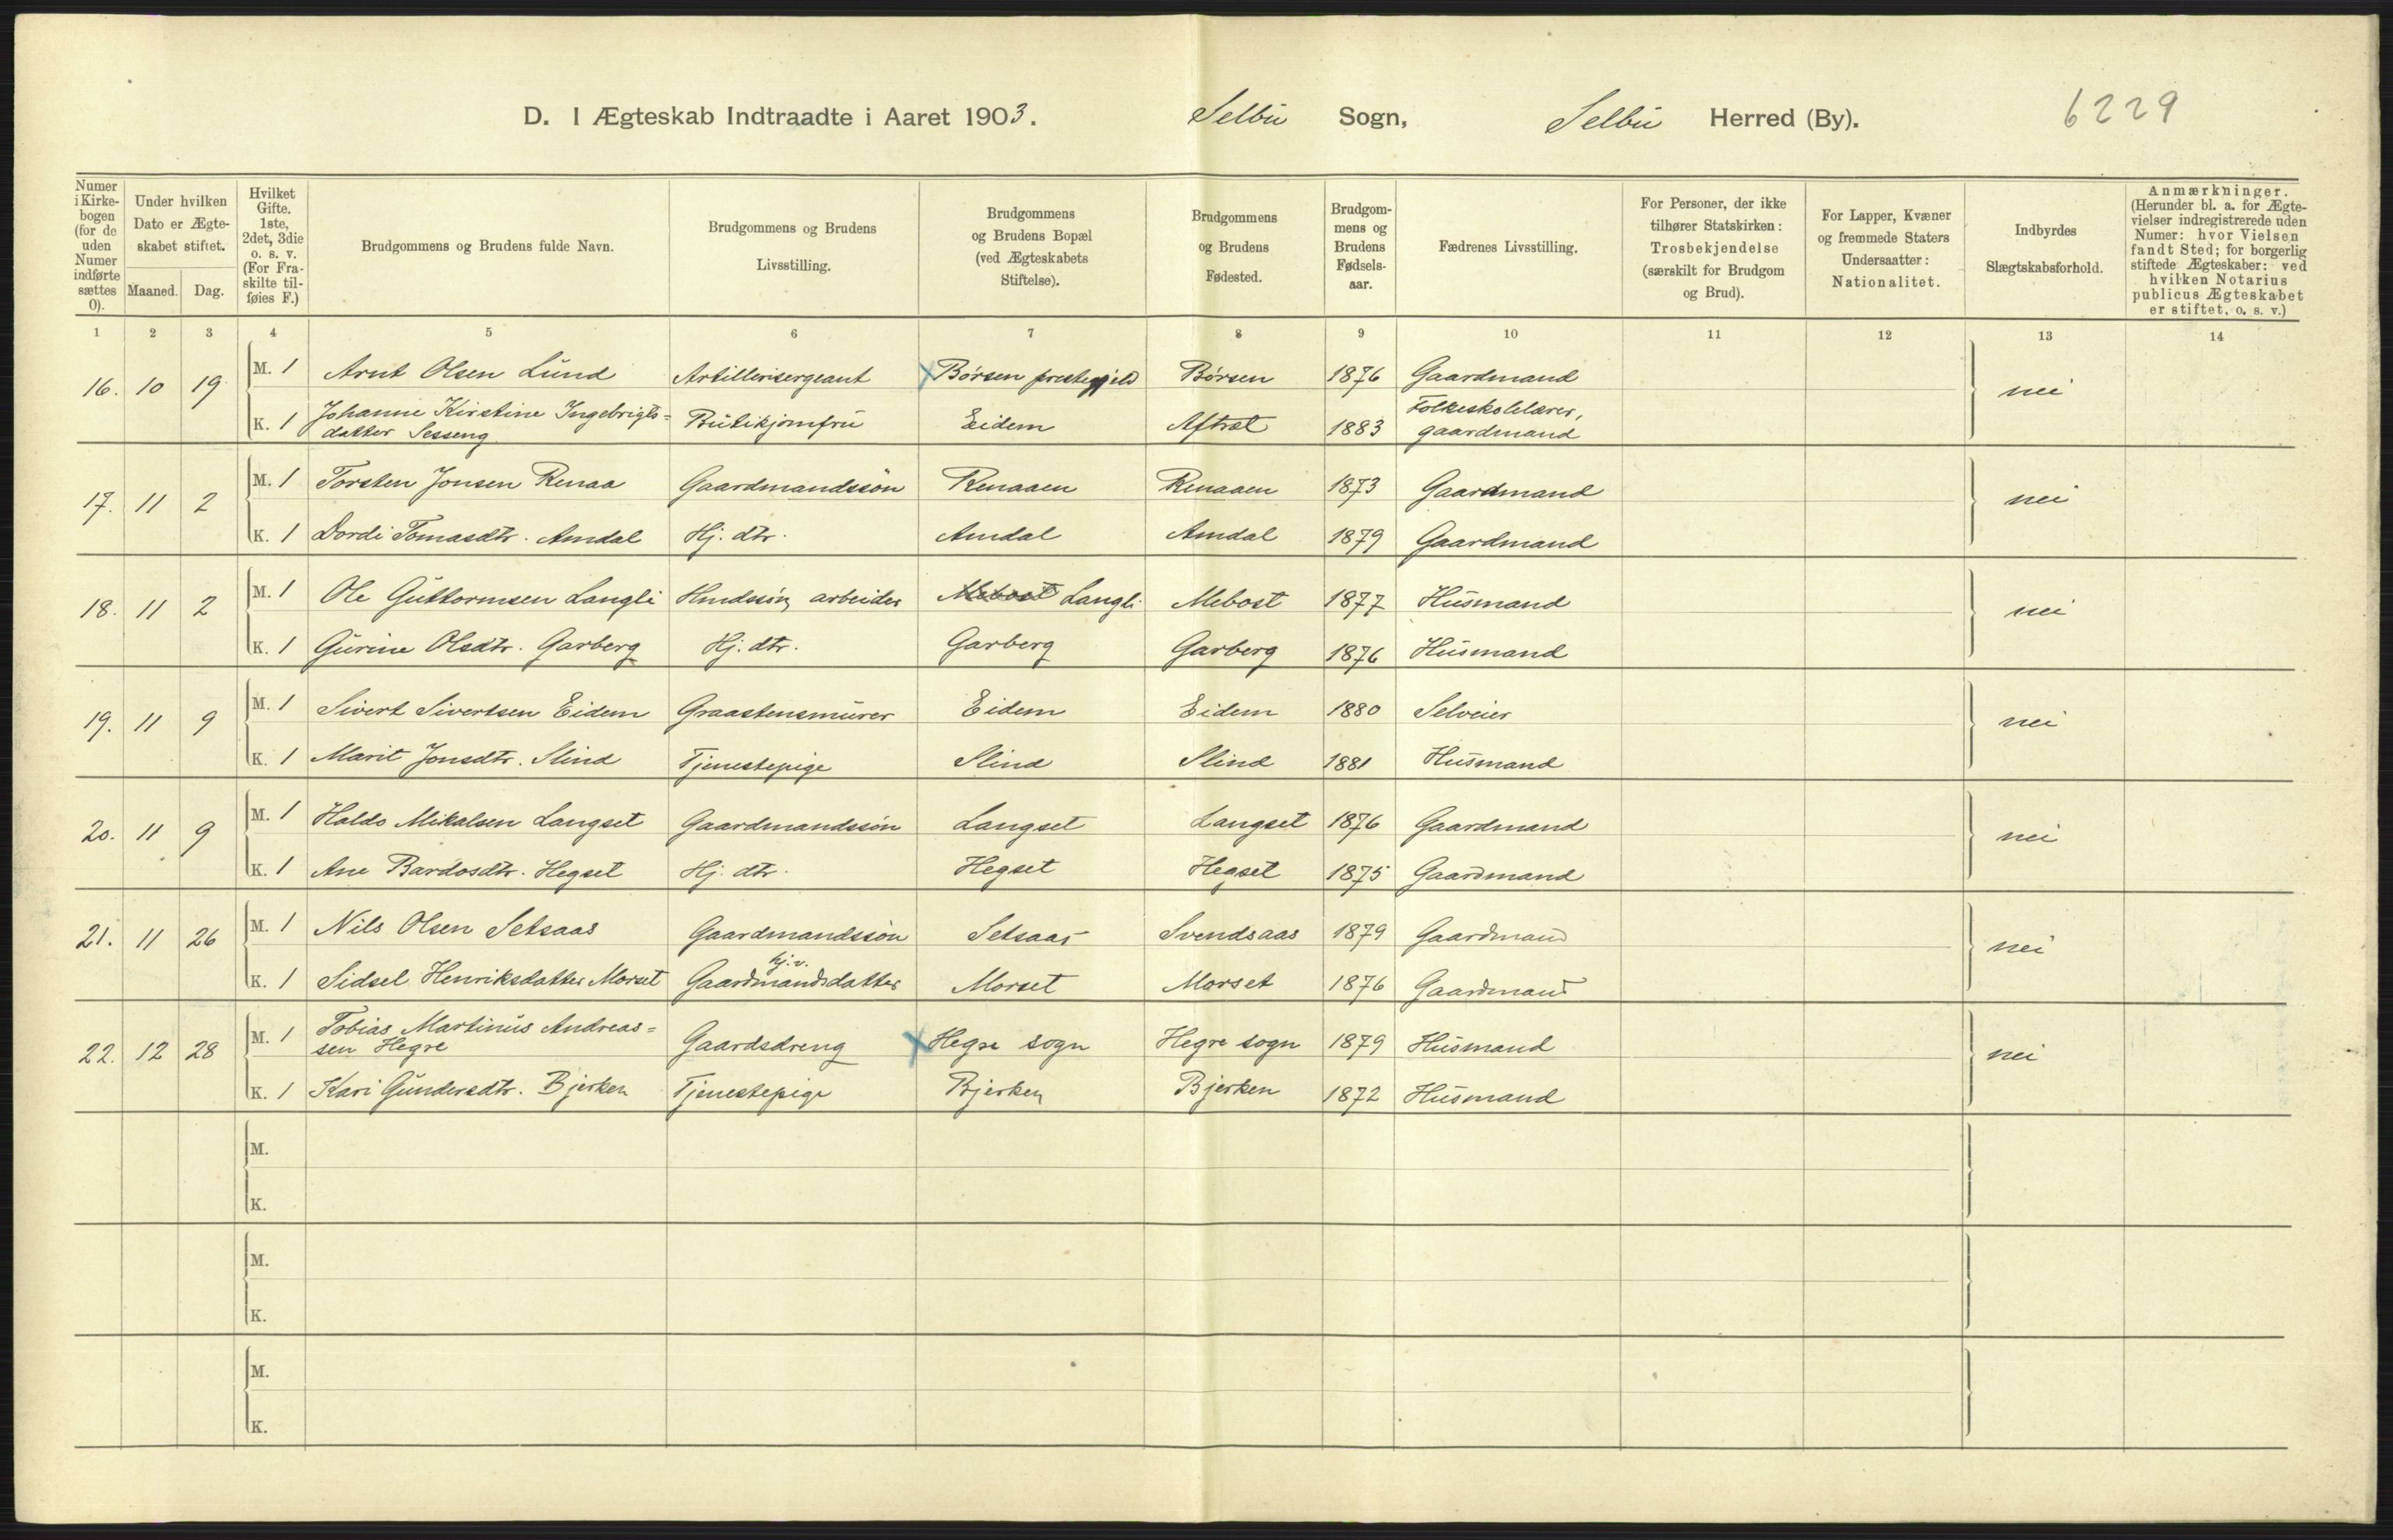 D. I Ægteskab Indtraadte i Aaret 1903. Selbu Sogn, Selbu Herred (By). 6229
Numer i Kirkebogen (for de uden Numer indførte sættes 0). Under hvilken Dato er Ægteskabet stiftet. Maaned. Dag. Hvilket Gifte. 1ste, 2det, 3die o. s. v. (For Fraskilte tilføies F.) Brudgommens og Brudens fulde Navn. Brudgommens og Brudens Livsstilling. Brudgommens og Brudens Bopæl (ved Ægteskabets Stiftelse). Brudgommens og Brudens Fødested. Brudgommens og Brudens Fødselsaar. Fædrenes Livsstilling. For Personer, der ikke tilhører Statskirken: Trosbekjendelse (særskilt for Brudgom og Brud). For Lapper, Kvæner og fremmede Staters Undersaatter: Nationalitet. Indbyrdes Slægtskabsforhold. Anmærkninger. (Herunder bl. a. for Ægtevielser indregistrerede uden Numer: hvor Vielsen fandt Sted; for borgerlig stiftede Ægteskaber: ved hvilken Notarius publicus Ægteskabet er stiftet, o. s. v.)
1 2 3 4 5 6 7 8 9 10 11 12 13 14
16. 10 19 M. 1 Arnt Olsen Lund Artillerisergeant Børsen prestegjeld Børsen 1876 Gaardmand nei
K. 1 Johanne Kirstine Ingebrigts= datter Sesseng Butikjomfru Eidem Aftret 1883 Folkeskolelærer, gaardmand
17. 11 2 M. 1 Torsten Jonsen Renaa Gaardmandssøn Renaaen Renaaen 1873 Gaardmand nei
K. 1 Dordi Tomasdtr. Amdal Hj. dtr. Amdal Amdal 1879 Gaardmand
18. 11 2 M. 1 Ole Guttormsen Langli Hmdssøn, arbeider Mebost Langli Mebost 1877 Husmand nei
K. 1 Gurine Olsdtr. Garberg Hj. dtr. Garberg Garberg 1876 Husmand
19. 11 9 M. 1 Sivert Sivertsen Eidem Graastensmurer Eidem Eidem 1880 Selveier nei
K. 1 Marit Jonsdtr. Slind Tjenestepige Slind Slind 1881 Husmand
20. 11 9 M. 1 Haldo Mikalsen Langset Gaardmandssøn Langset Langset 1876 Gaardmand nei
K. 1 Ane Bardosdtr. Hegset Hj. dtr. Hegset Hegset 1875 Gaardmand
21. 11 26 M. 1 Nils Olsen Setsaas Gaardmandssøn Setsaas Svendsaas 1879 Gaardmand nei
K. 1 Sidsel Henriksdatter Morset Gaardmandsdatter hj. v. Morset Morset 1876 Gaardmand
22. 12 28 M. 1 Tobias Martinus Andreas= sen Hegre Gaardsdreng Hegre sogn Hegre sogn 1879 Husmand nei
K. 1 Kari Gundersdtr. Bjerken Tjenestepige Bjerken Bjerken 1872 Husmand
M.
K.
M.
K.
M.
K.